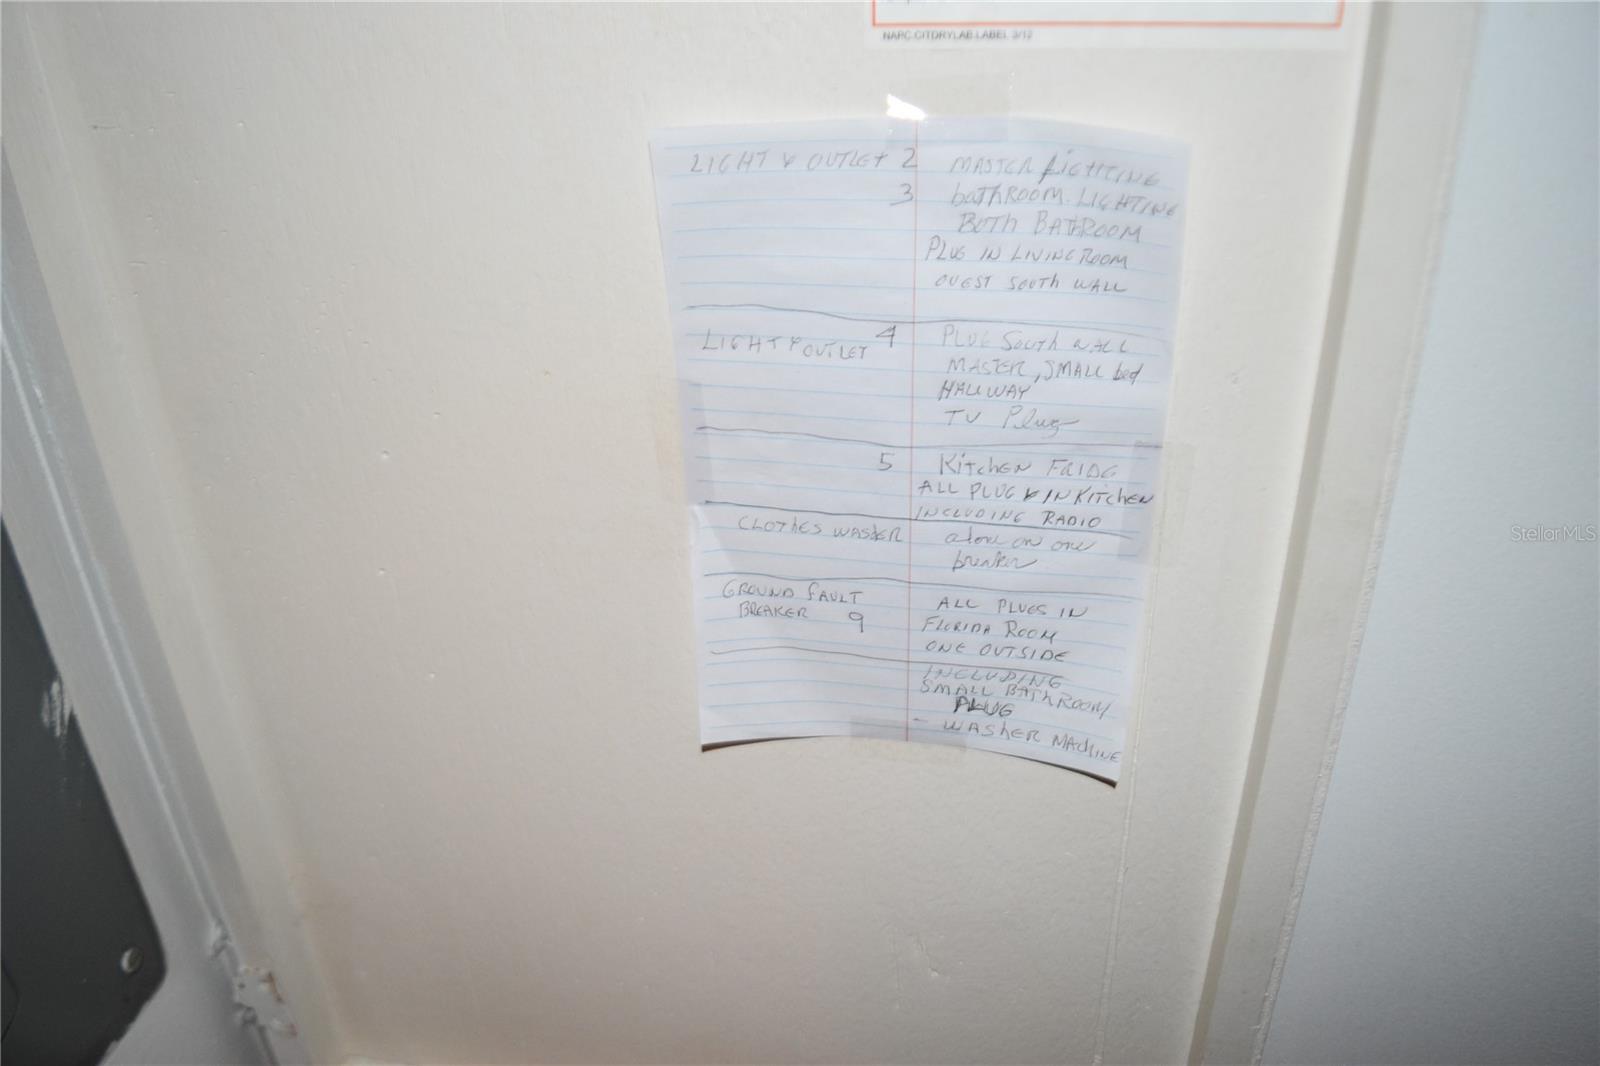 NAPC.CITDRYLAB.LABEL 3/12
LIGHT & OUTLET 2 MASTER LIGHTING
3 bathROOM. LIGHTING
BOTH BATHROOM
PLUG IN LIVING ROOM
OUEST SOUTH WALL
LIGHT & OUTLET 4 PLUG SOUTH WALL
MASTER, SMALL bed
HALLWAY
TV Plug
5 KitchEN FRIDG
ALL PLUG & IN KITCHEN
INCLUDING RADIO
CLOTHES WASHER alone on one
breaker
GROUND FAULT
BREAKER 9
ALL PLUGS IN
FLORIDA ROOM
ONE OUTSIDE
INCLUDING
SMALL BATHROOM
PLUG
- WASHER MACHINE
StellarMLS